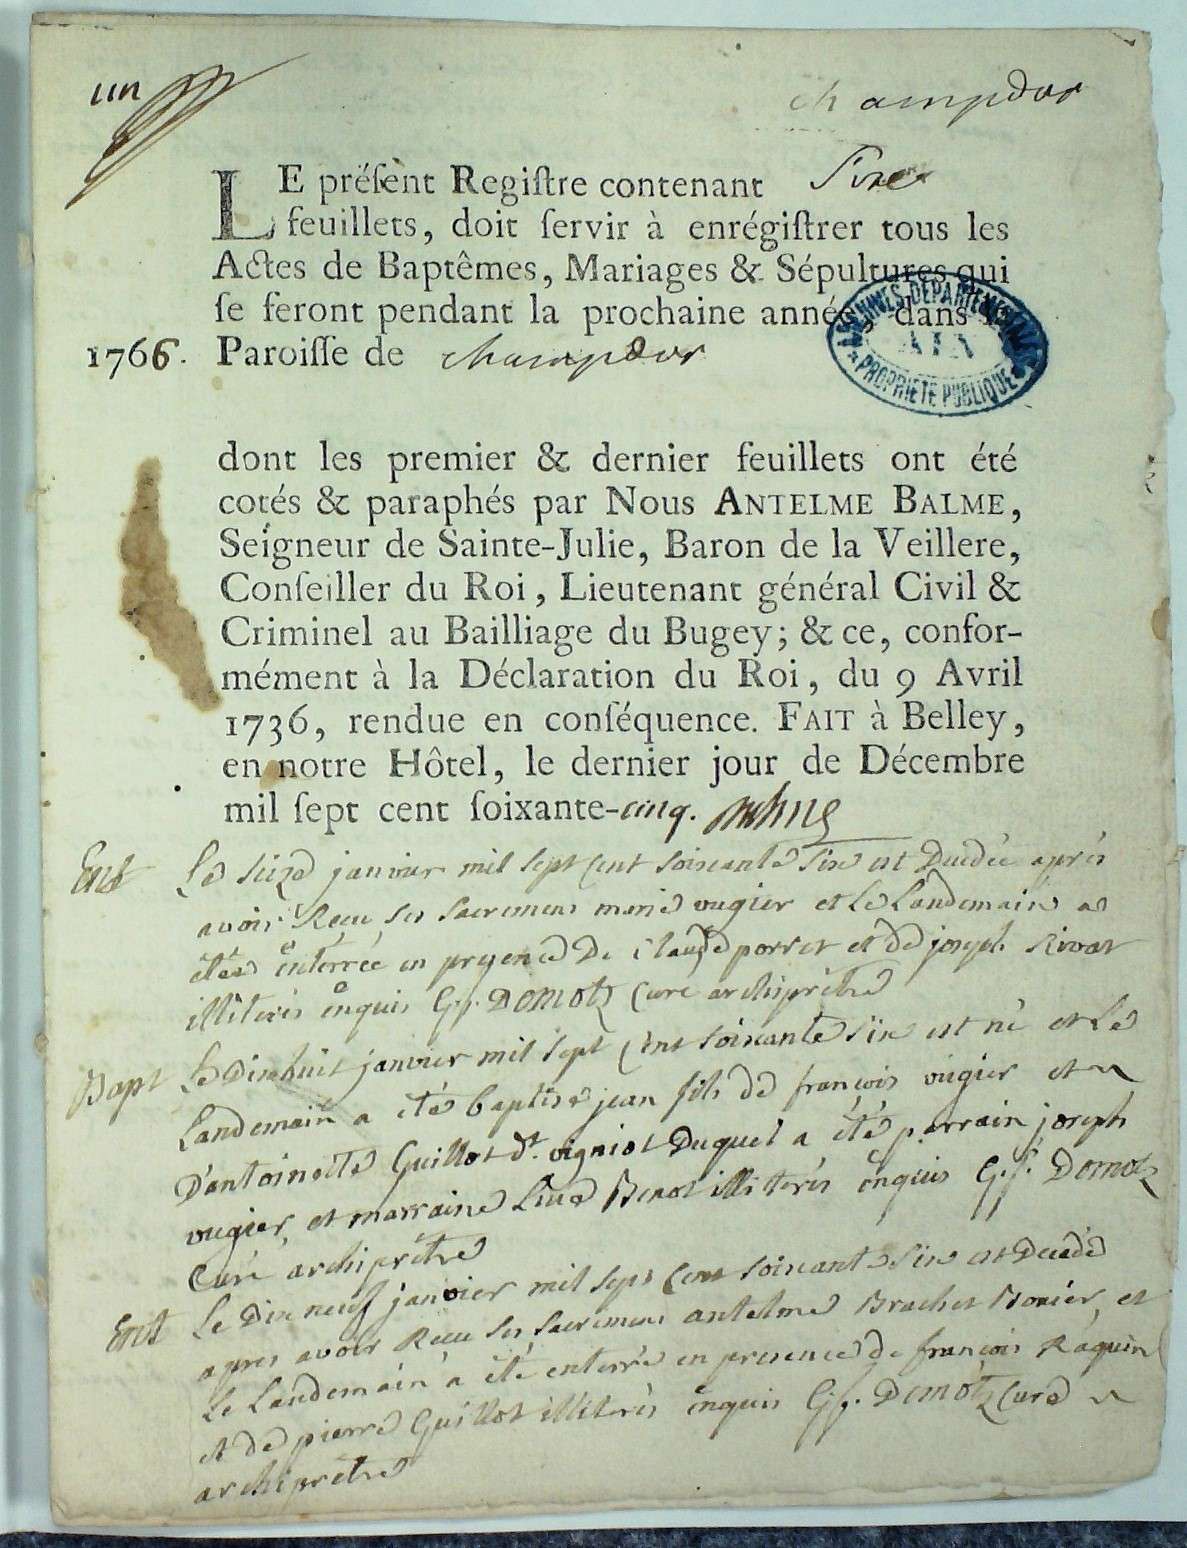 un
champdor
LE préſent Regiſtre contenant Six
feuillets, doit ſervir à enrégiſtrer tous les
Actes de Baptêmes, Mariages & Sépultures qui
ſe feront pendant la prochaine année, dans la
1766. Paroiſſe de champdor
ARCHIVES DÉPARTEMENTALES
AIN
PROPRIÉTÉ PUBLIQUE
dont les premier & dernier feuillets ont été
cotés & paraphés par Nous ANTELME BALME,
Seigneur de Sainte-Julie, Baron de la Veillere,
Conſeiller du Roi, Lieutenant général Civil &
Criminel au Bailliage du Bugey; & ce, confor-
mément à la Déclaration du Roi, du 9 Avril
1736, rendue en conſéquence. FAIT à Belley,
en notre Hôtel, le dernier jour de Décembre
mil ſept cent ſoixante-cinq.
Ent Le seize janvier mil sept cent soixante six est decedée après
avoir Reçu ses sacremens marie vugier et le landemain a
étée enterrée en presence de Claude porret et de joseph Rivat
illiterés enquis G.f. DEMOtz Curé archiprêtre
Bapt Le Dixhuit janvier mil sept cent soixante six est né et le
landemain a été baptisé jean fils de françois vugier et
D'antoinette Guillot dt. vigniot Duquel a été parrain joseph
vugier, et marraine Benot illiterés enquis G.f. Demotz
Curé archiprêtre
Ent Le Dix neuf janvier mil sept cent soixante six est decédé
apres avoir Reçu ses sacremens antelme Brachet Bovier, et
Le landemain a été enterré en presence de françois Raquin
et de pierre Guillot illiterés enquis G.f. DEMOtz Curé
archiprêtre